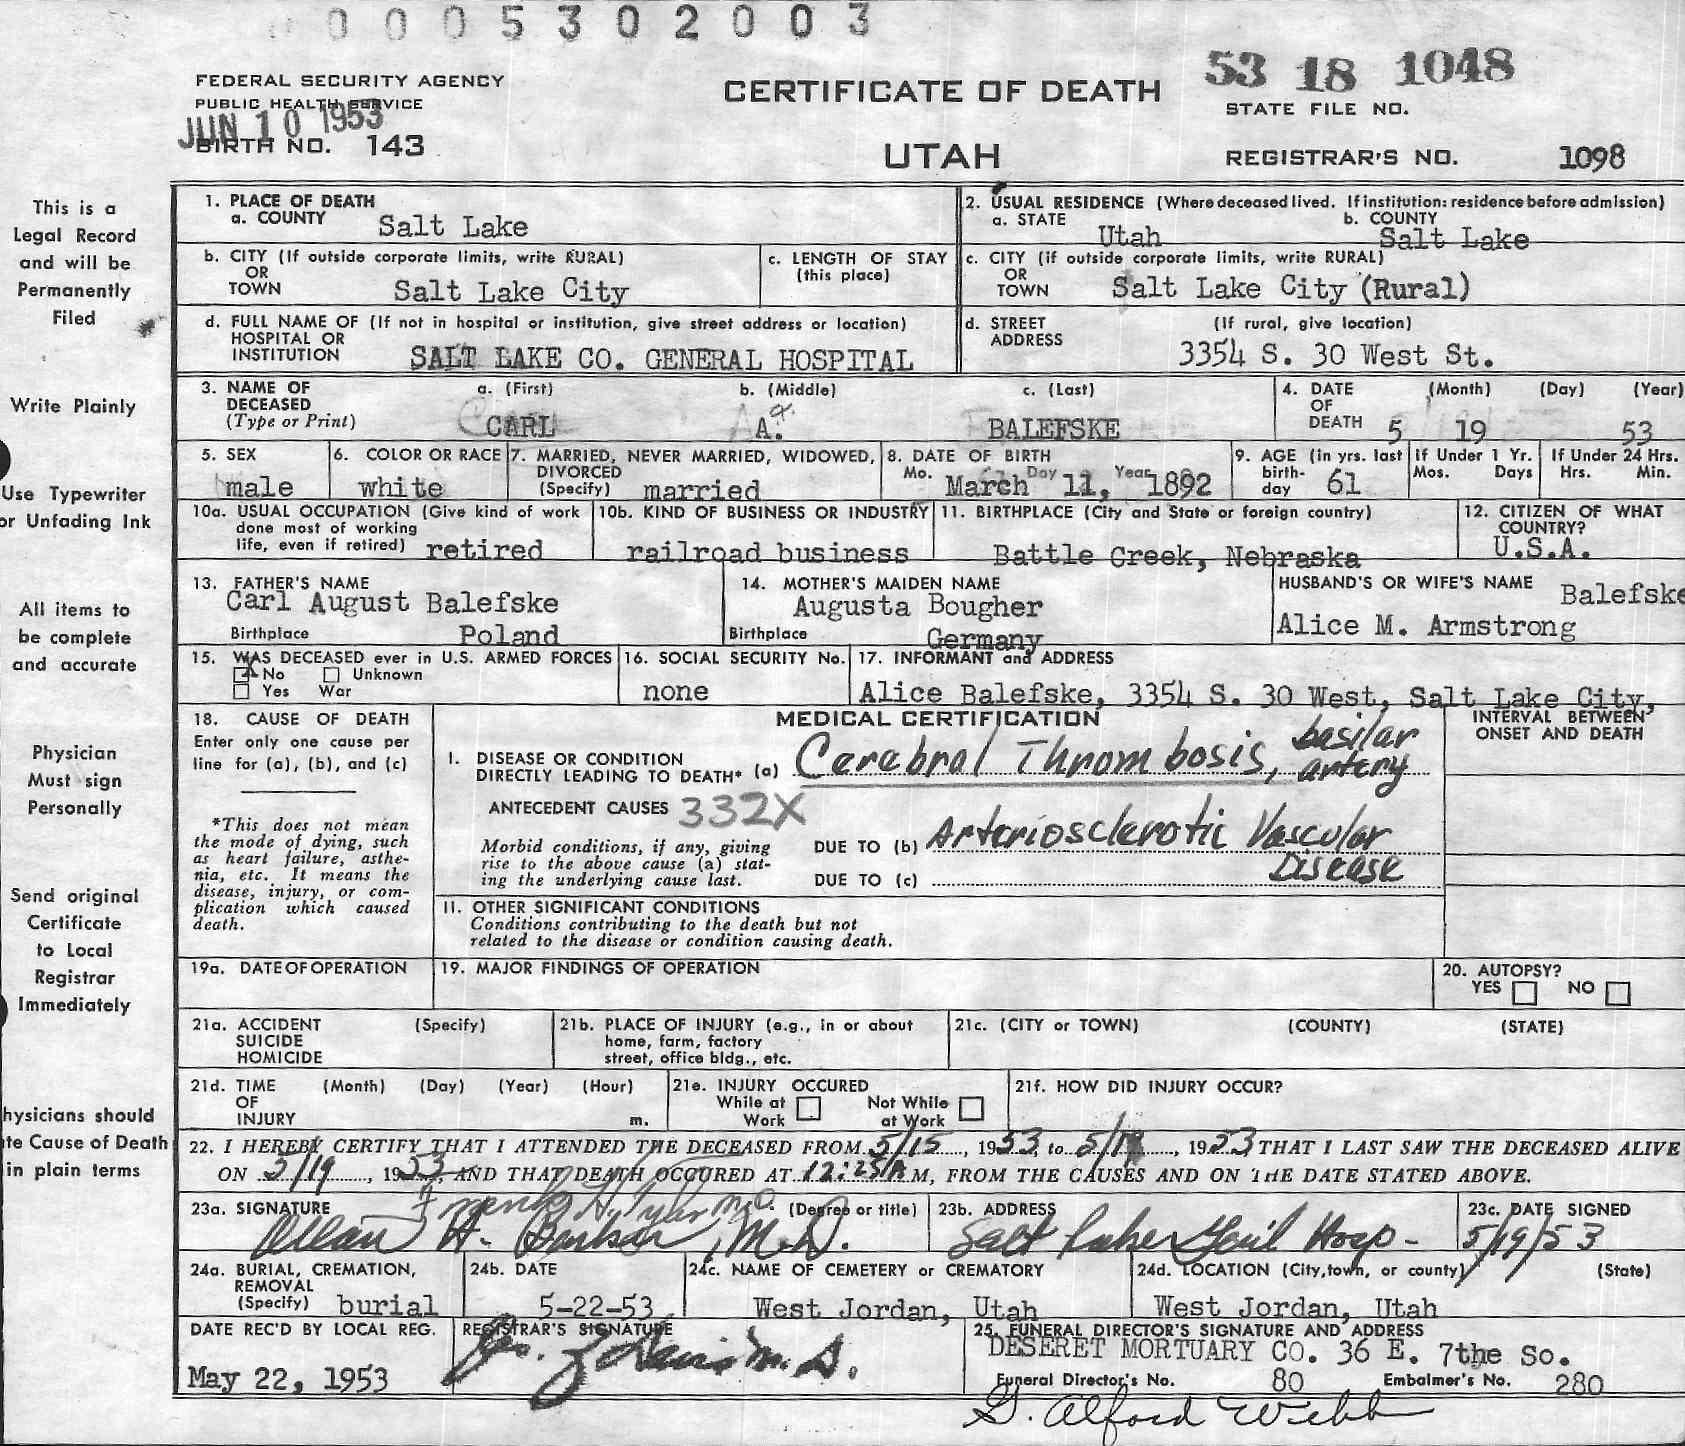 0 0 0 5 3 0 2 0 0 3
FEDERAL SECURITY AGENCY
PUBLIC HEALTH SERVICE
JUN 10 1953
BIRTH NO. 143
CERTIFICATE OF DEATH
UTAH
53 18 1048
STATE FILE NO.
REGISTRAR'S NO. 1098
This is a
Legal Record
and will be
Permanently
Filed
Write Plainly
Use Typewriter
or Unfading Ink
All items to
be complete
and accurate
Physician
Must sign
Personally
Send original
Certificate
to Local
Registrar
Immediately
hysicians should
te Cause of Death
in plain terms
1. PLACE OF DEATH
a. COUNTY Salt Lake
2. USUAL RESIDENCE (Where deceased lived. If institution: residence before admission)
a. STATE Utah b. COUNTY Salt Lake
b. CITY (If outside corporate limits, write RURAL)
OR
TOWN Salt Lake City
c. LENGTH OF STAY
(this place)
c. CITY (if outside corporate limits, write RURAL)
OR
TOWN Salt Lake City (Rural)
d. FULL NAME OF (If not in hospital or institution, give street address or location)
HOSPITAL OR
INSTITUTION SALT LAKE CO. GENERAL HOSPITAL
d. STREET (If rural, give location)
ADDRESS 3354 S. 30 West St.
3. NAME OF a. (First) b. (Middle) c. (Last)
DECEASED
(Type or Print) CARL A. BALEFSKE
4. DATE (Month) (Day) (Year)
OF
DEATH 5 19 53
5. SEX
male
6. COLOR OR RACE
white
7. MARRIED, NEVER MARRIED, WIDOWED,
DIVORCED
(Specify) married
8. DATE OF BIRTH
Mo. Day Year
March 11, 1892
9. AGE (in yrs. last
birth-
day 61
If Under 1 Yr.
Mos. Days
If Under 24 Hrs.
Hrs. Min.
10a. USUAL OCCUPATION (Give kind of work
done most of working
life, even if retired) retired
10b. KIND OF BUSINESS OR INDUSTRY
railroad business
11. BIRTHPLACE (City and State or foreign country)
Battle Creek, Nebraska
12. CITIZEN OF WHAT
COUNTRY?
U.S.A.
13. FATHER'S NAME
Carl August Balefske
Birthplace Poland
14. MOTHER'S MAIDEN NAME
Augusta Bougher
Birthplace Germany
HUSBAND'S OR WIFE'S NAME Balefske
Alice M. Armstrong
15. WAS DECEASED ever in U.S. ARMED FORCES
X No Unknown
Yes War
16. SOCIAL SECURITY No.
none
17. INFORMANT and ADDRESS
Alice Balefske, 3354 S. 30 West, Salt Lake City,
18. CAUSE OF DEATH
Enter only one cause per
line for (a), (b), and (c)
*This does not mean
the mode of dying, such
as heart failure, asthe-
nia, etc. It means the
disease, injury, or com-
plication which caused
death.
MEDICAL CERTIFICATION
INTERVAL BETWEEN
ONSET AND DEATH
I. DISEASE OR CONDITION
DIRECTLY LEADING TO DEATH* (a) Cerebral Thrombosis, basilar
artery
ANTECEDENT CAUSES 332X
Morbid conditions, if any, giving
rise to the above cause (a) stat-
ing the underlying cause last.
DUE TO (b) Arteriosclerotic Vascular
Disease
DUE TO (c)
II. OTHER SIGNIFICANT CONDITIONS
Conditions contributing to the death but not
related to the disease or condition causing death.
19a. DATE OF OPERATION
19. MAJOR FINDINGS OF OPERATION
20. AUTOPSY?
YES NO
21a. ACCIDENT (Specify)
SUICIDE
HOMICIDE
21b. PLACE OF INJURY (e.g., in or about
home, farm, factory
street, office bldg., etc.
21c. (CITY or TOWN) (COUNTY) (STATE)
21d. TIME (Month) (Day) (Year) (Hour)
OF
INJURY m.
21e. INJURY OCCURED
While at Not While
Work at Work
21f. HOW DID INJURY OCCUR?
22. I HEREBY CERTIFY THAT I ATTENDED THE DECEASED FROM 5/15, 1953, to 5/19, 1953 THAT I LAST SAW THE DECEASED ALIVE
ON 5/19, 1953, AND THAT DEATH OCCURED AT 12:25A M, FROM THE CAUSES AND ON THE DATE STATED ABOVE.
23a. SIGNATURE Frank H. Tyler M.D. (Degree or title)
Allan H. Barker, M.D.
23b. ADDRESS
Salt Lake Gen'l Hosp-
23c. DATE SIGNED
5/19/53
24a. BURIAL, CREMATION,
REMOVAL
(Specify) burial
24b. DATE
5-22-53
24c. NAME OF CEMETERY or CREMATORY
West Jordan, Utah
24d. LOCATION (City, town, or county) (State)
West Jordan, Utah
DATE REC'D BY LOCAL REG.
May 22, 1953
REGISTRAR'S SIGNATURE
25. FUNERAL DIRECTOR'S SIGNATURE AND ADDRESS
DESERET MORTUARY CO. 36 E. 7the So.
Funeral Director's No. 80 Embalmer's No. 280
G. Alford Webb